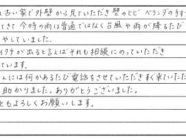 古い家で外壁から見ていただき壁のヒビ ベランダのすき
して今時の雨は普通ではなく台風や雨が降るたび
やしていました。
イタチがあると言えばそれも相談にのっていただき
ています。
んには何かあるたび電話をさせていただきすぐ来ていただ
助かりました。ありがとうございました。
もよろしくお願いします。